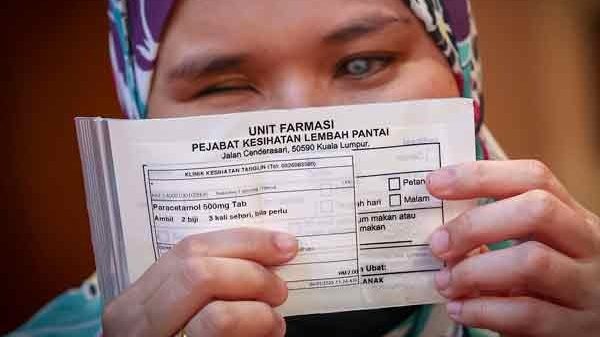 UNIT FARMASI
PEJABAT KESIHATAN LEMBAH PANTAI
Jalan Cenderasari, 50590 Kuala Lumpur.
KLINIK KESIHATAN TANGLIN (Tel:
Paracetamol 500mg Tab
Ambil 2 biji 3 kali sehari, bila perlu
RM2.00
Petan
hari
Malam
um makan atau
makan.
Ubat:
ANAK